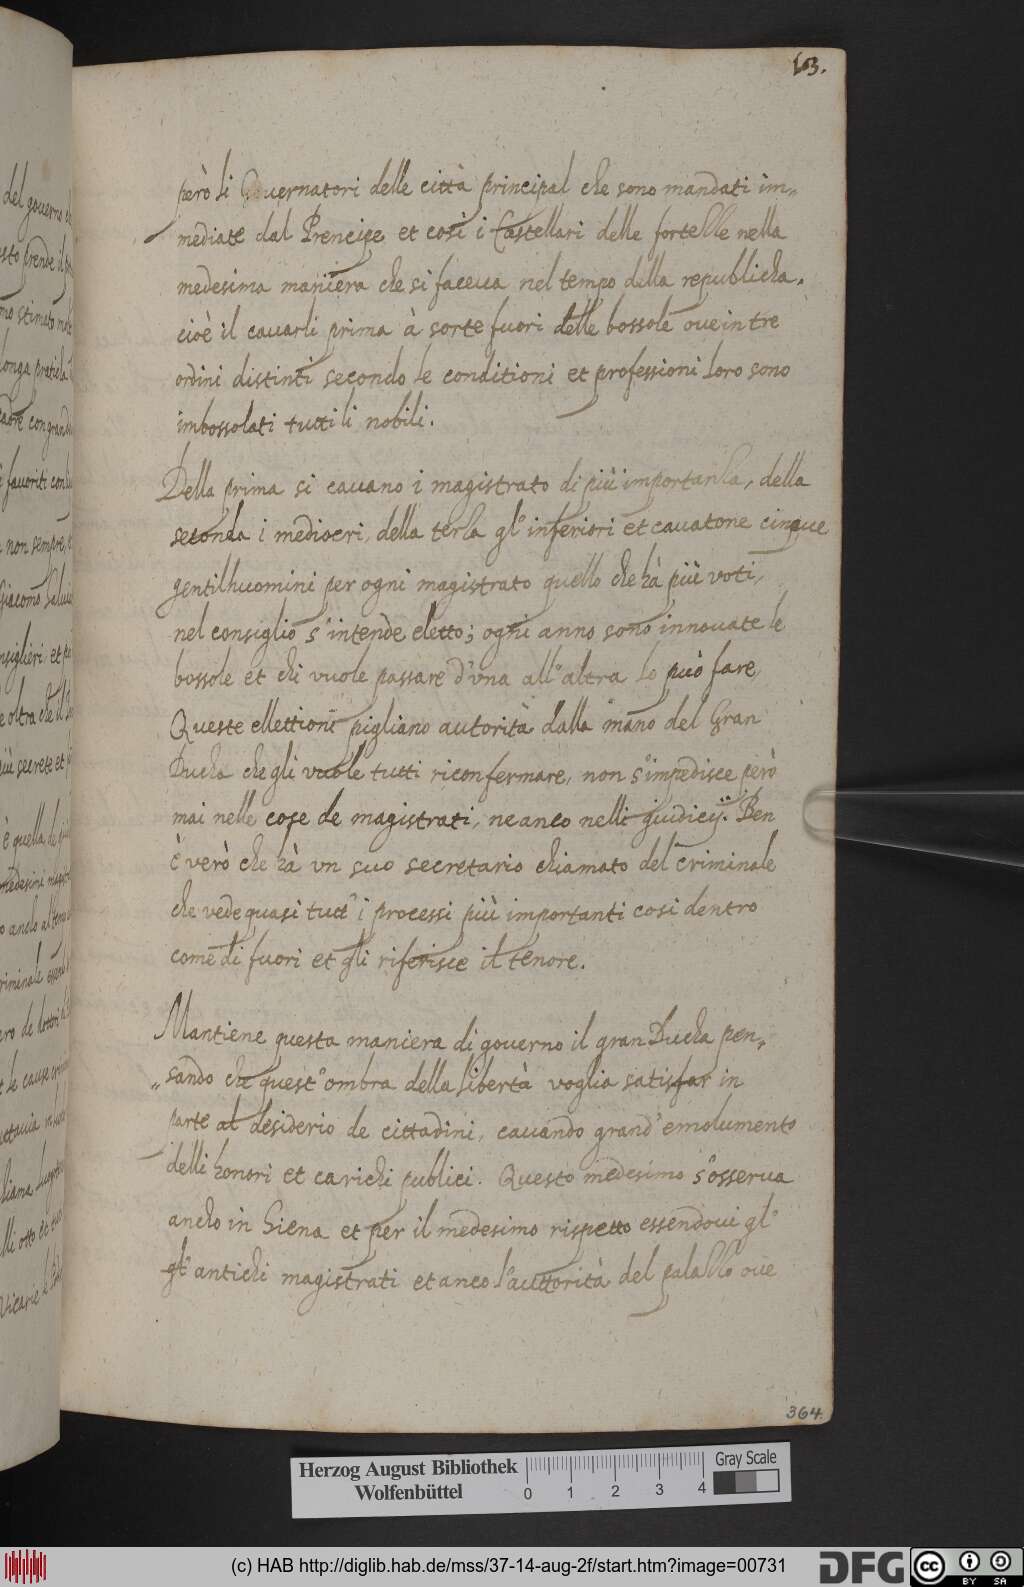 13.
però li Governatori delle città principal che sono mandati im=
mediate dal Prencipe et così i Castellari delle fortezze nella
medesima maniera che si faceua nel tempo della republicha.
cioè il cauarli prima à sorte fuori delle bossole oue in tre
ordini distinti secondo le conditioni et professioni loro sono
imbossolati tutti li nobili.
Della prima si cauano i magistrato di più importanza, della
seconda i mediocri, della terza gl'inferiori et cauatone cinque
gentilhuomini per ogni magistrato quello che hà più voti,
nel consiglio s'intende eletto; ogni anno sono innouate le
bossole et chi vuole passare d'vna all'altra lo può fare,
Queste ellettioni pigliano autorità dalla mano del Gran
Ducha che gli vuole tutti riconfermare, non s'impedisce però
mai nelle cose de magistrati, ne anco nelli giudicij. Ben
è verò che hà vn suo secretario chiamato del criminale
che vede quasi tutt'i processi più importanti così dentro
come di fuori et gli riferisce il tenore.
Mantiene questa maniera di gouerno il gran Ducha pen=
sando che quest'ombra della libertà voglia satisfar in
parte al desiderio de cittadini, cauando grand'emolumento
delli honori et carichi publici. Questo medesimo s'osserua
ancho in Siena et per il medesimo rispetto essendoui gl'
gl'antichi magistrati et anco l'auttorità del palazzo oue
364.
del gouerno
prende il
mo stimato
longa praticha
con grand
favoriti
non sempre,
Giacomo Salui
nsiglieri et
oltra che il
più secrete et
è quella de
medesimi
criminale
de dottori
le cause
otto
Vicarie
Herzog August Bibliothek
Wolfenbüttel
0 1 2 3 4
Gray Scale
(c) HAB http://diglib.hab.de/mss/37-14-aug-2f/start.htm?image=00731
DFG
cc BY SA